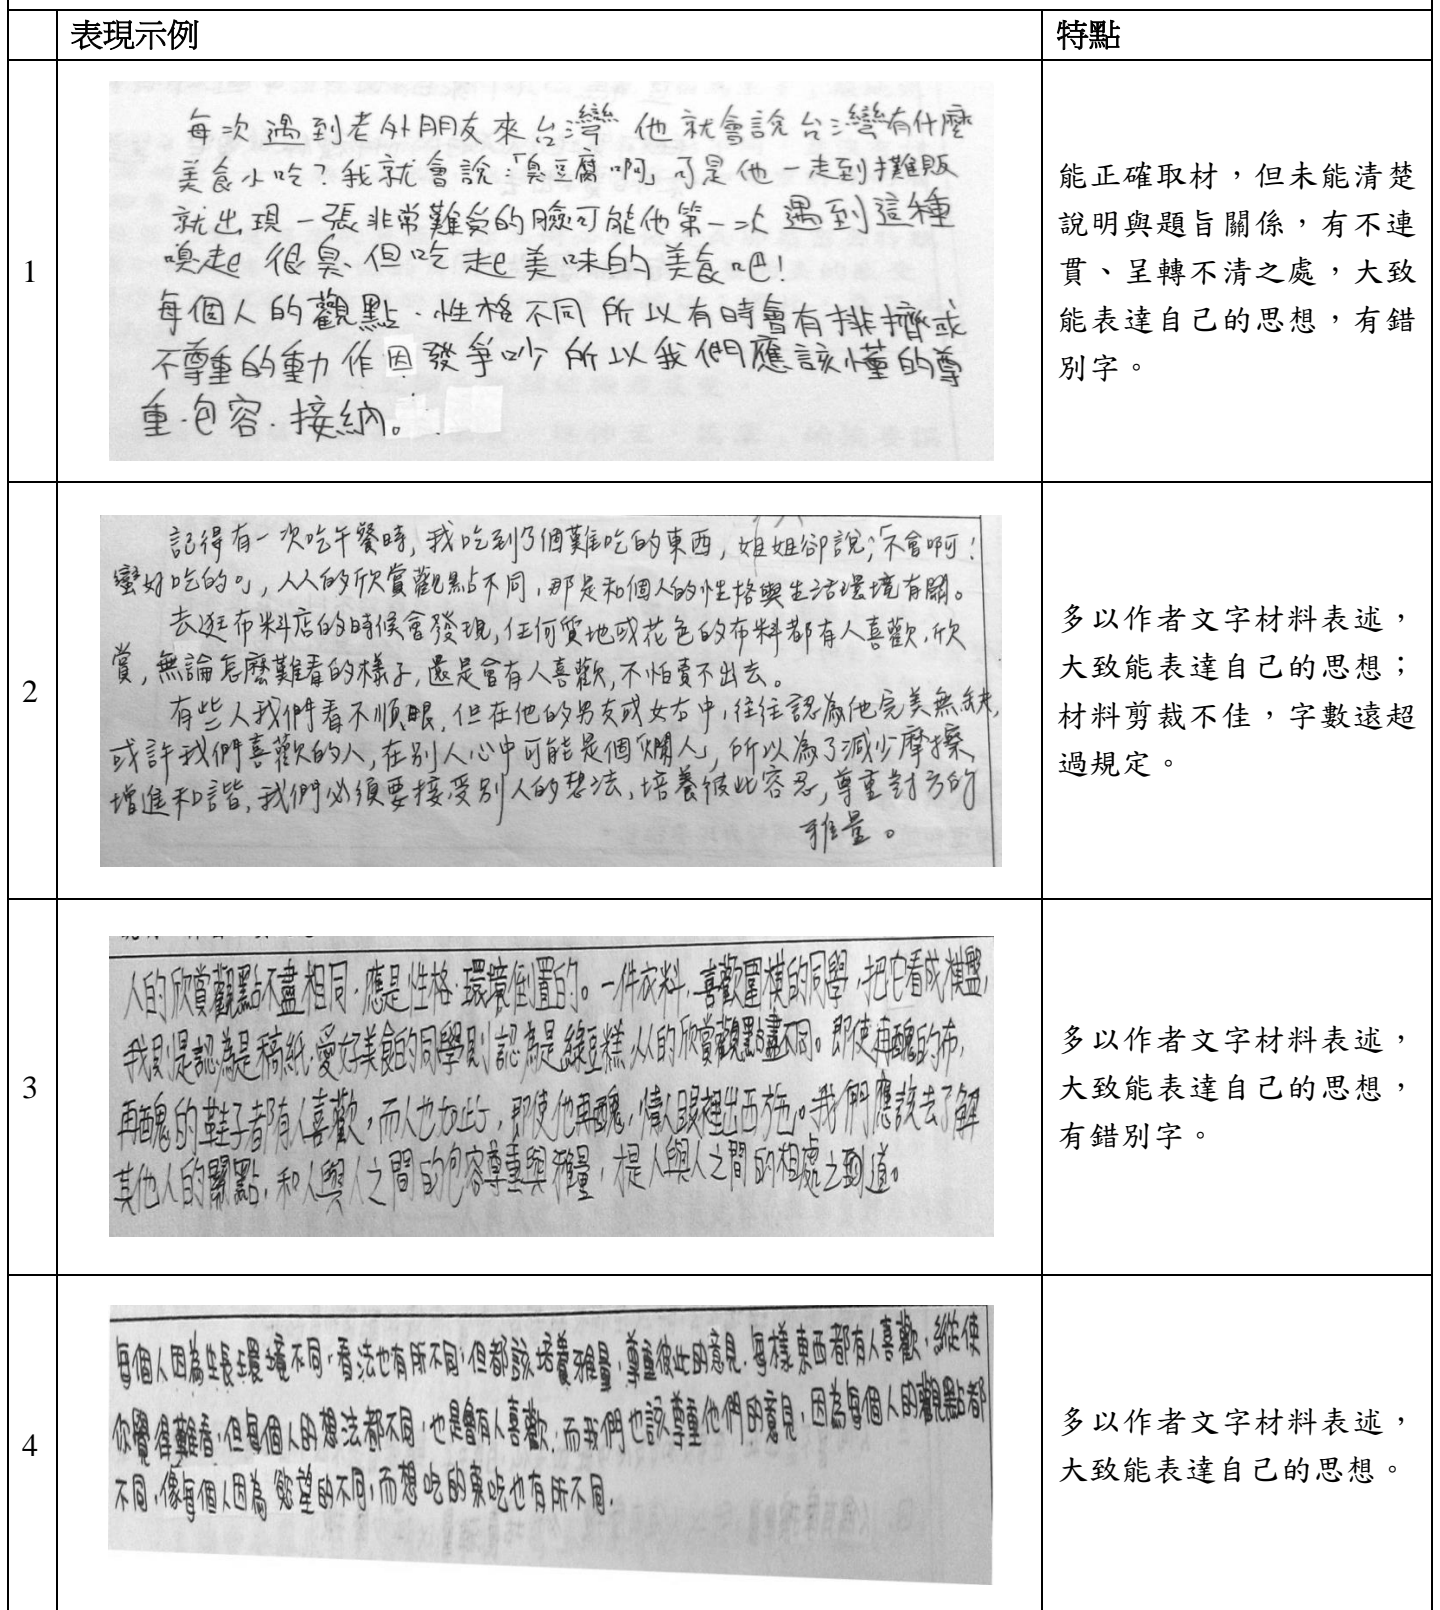 表現示例
特點
1
每次遇到老外朋友來台灣 他就會說台灣有什麼
美食小吃?我就會說:「臭豆腐啊」可是他一走到攤販
就出現一張非常難必的臉可能他第一次遇到這種
嗅起很臭、但吃起美味的美食吧!
每個人的觀點．性格不同 所以有時會有排擠或
不尊重的動作因發爭吵 所以我們應該懂的尊
重．包容．接納。
能正確取材，但未能清楚
說明與題旨關係，有不連
貫、呈轉不清之處，大致
能表達自己的思想，有錯
別字。
2
記得有一次吃午餐時,我吃到了個難吃的東西,姐姐卻說;「不會啊!
蠻好吃的。」,人人的欣賞觀點不同,那是和個人的性格與生活環境有關。
去逛布料店的時候會發現,任何質地或花色的布料都有人喜歡.欣
賞,無論怎麼難看的樣子,還是會有人喜歡,不怕賣不出去。
有些人我們看不順眼,但在他的男友或女友中,往往認為他完美無缺,
或許我們喜歡的人,在別人心中可能是個「爛人」,所以為了減少摩擦,
增進和諧,我們必須要接受別人的想法,培養彼此容忍,尊重對方的
雅量。
多以作者文字材料表述，
大致能表達自己的思想；
材料剪裁不佳，字數遠超
過規定。
3
人的欣賞觀點不盡相同，應是性格、環境倒置的。一件衣料，喜歡圍棋的同學，把它看成棋盤，
我則是認為是稿紙，愛好美食的同學則認為是綠豆糕，人的欣賞觀點盡不同。即使再醜的布，
再醜的鞋子都有人喜歡，而人也如此，即使他再醜，情人眼裡出西施。我們應該去了解
其他人的關點，和人與人之間的包容尊重與雅量，才是人與人之間的相處之到道。
多以作者文字材料表述，
大致能表達自己的思想，
有錯別字。
4
每個人因為生長環境不同，看法也有所不同，但都該培養雅量，尊重彼此的意見，每樣東西都有人喜歡，縱使
你覺得難看，但每個人的想法都不同，也是會有人喜歡，而我們也該尊重他們的意見，因為每個人的觀點都
不同，像每個人因為慾望的不同，而想吃的東吃也有所不同．
多以作者文字材料表述，
大致能表達自己的思想。